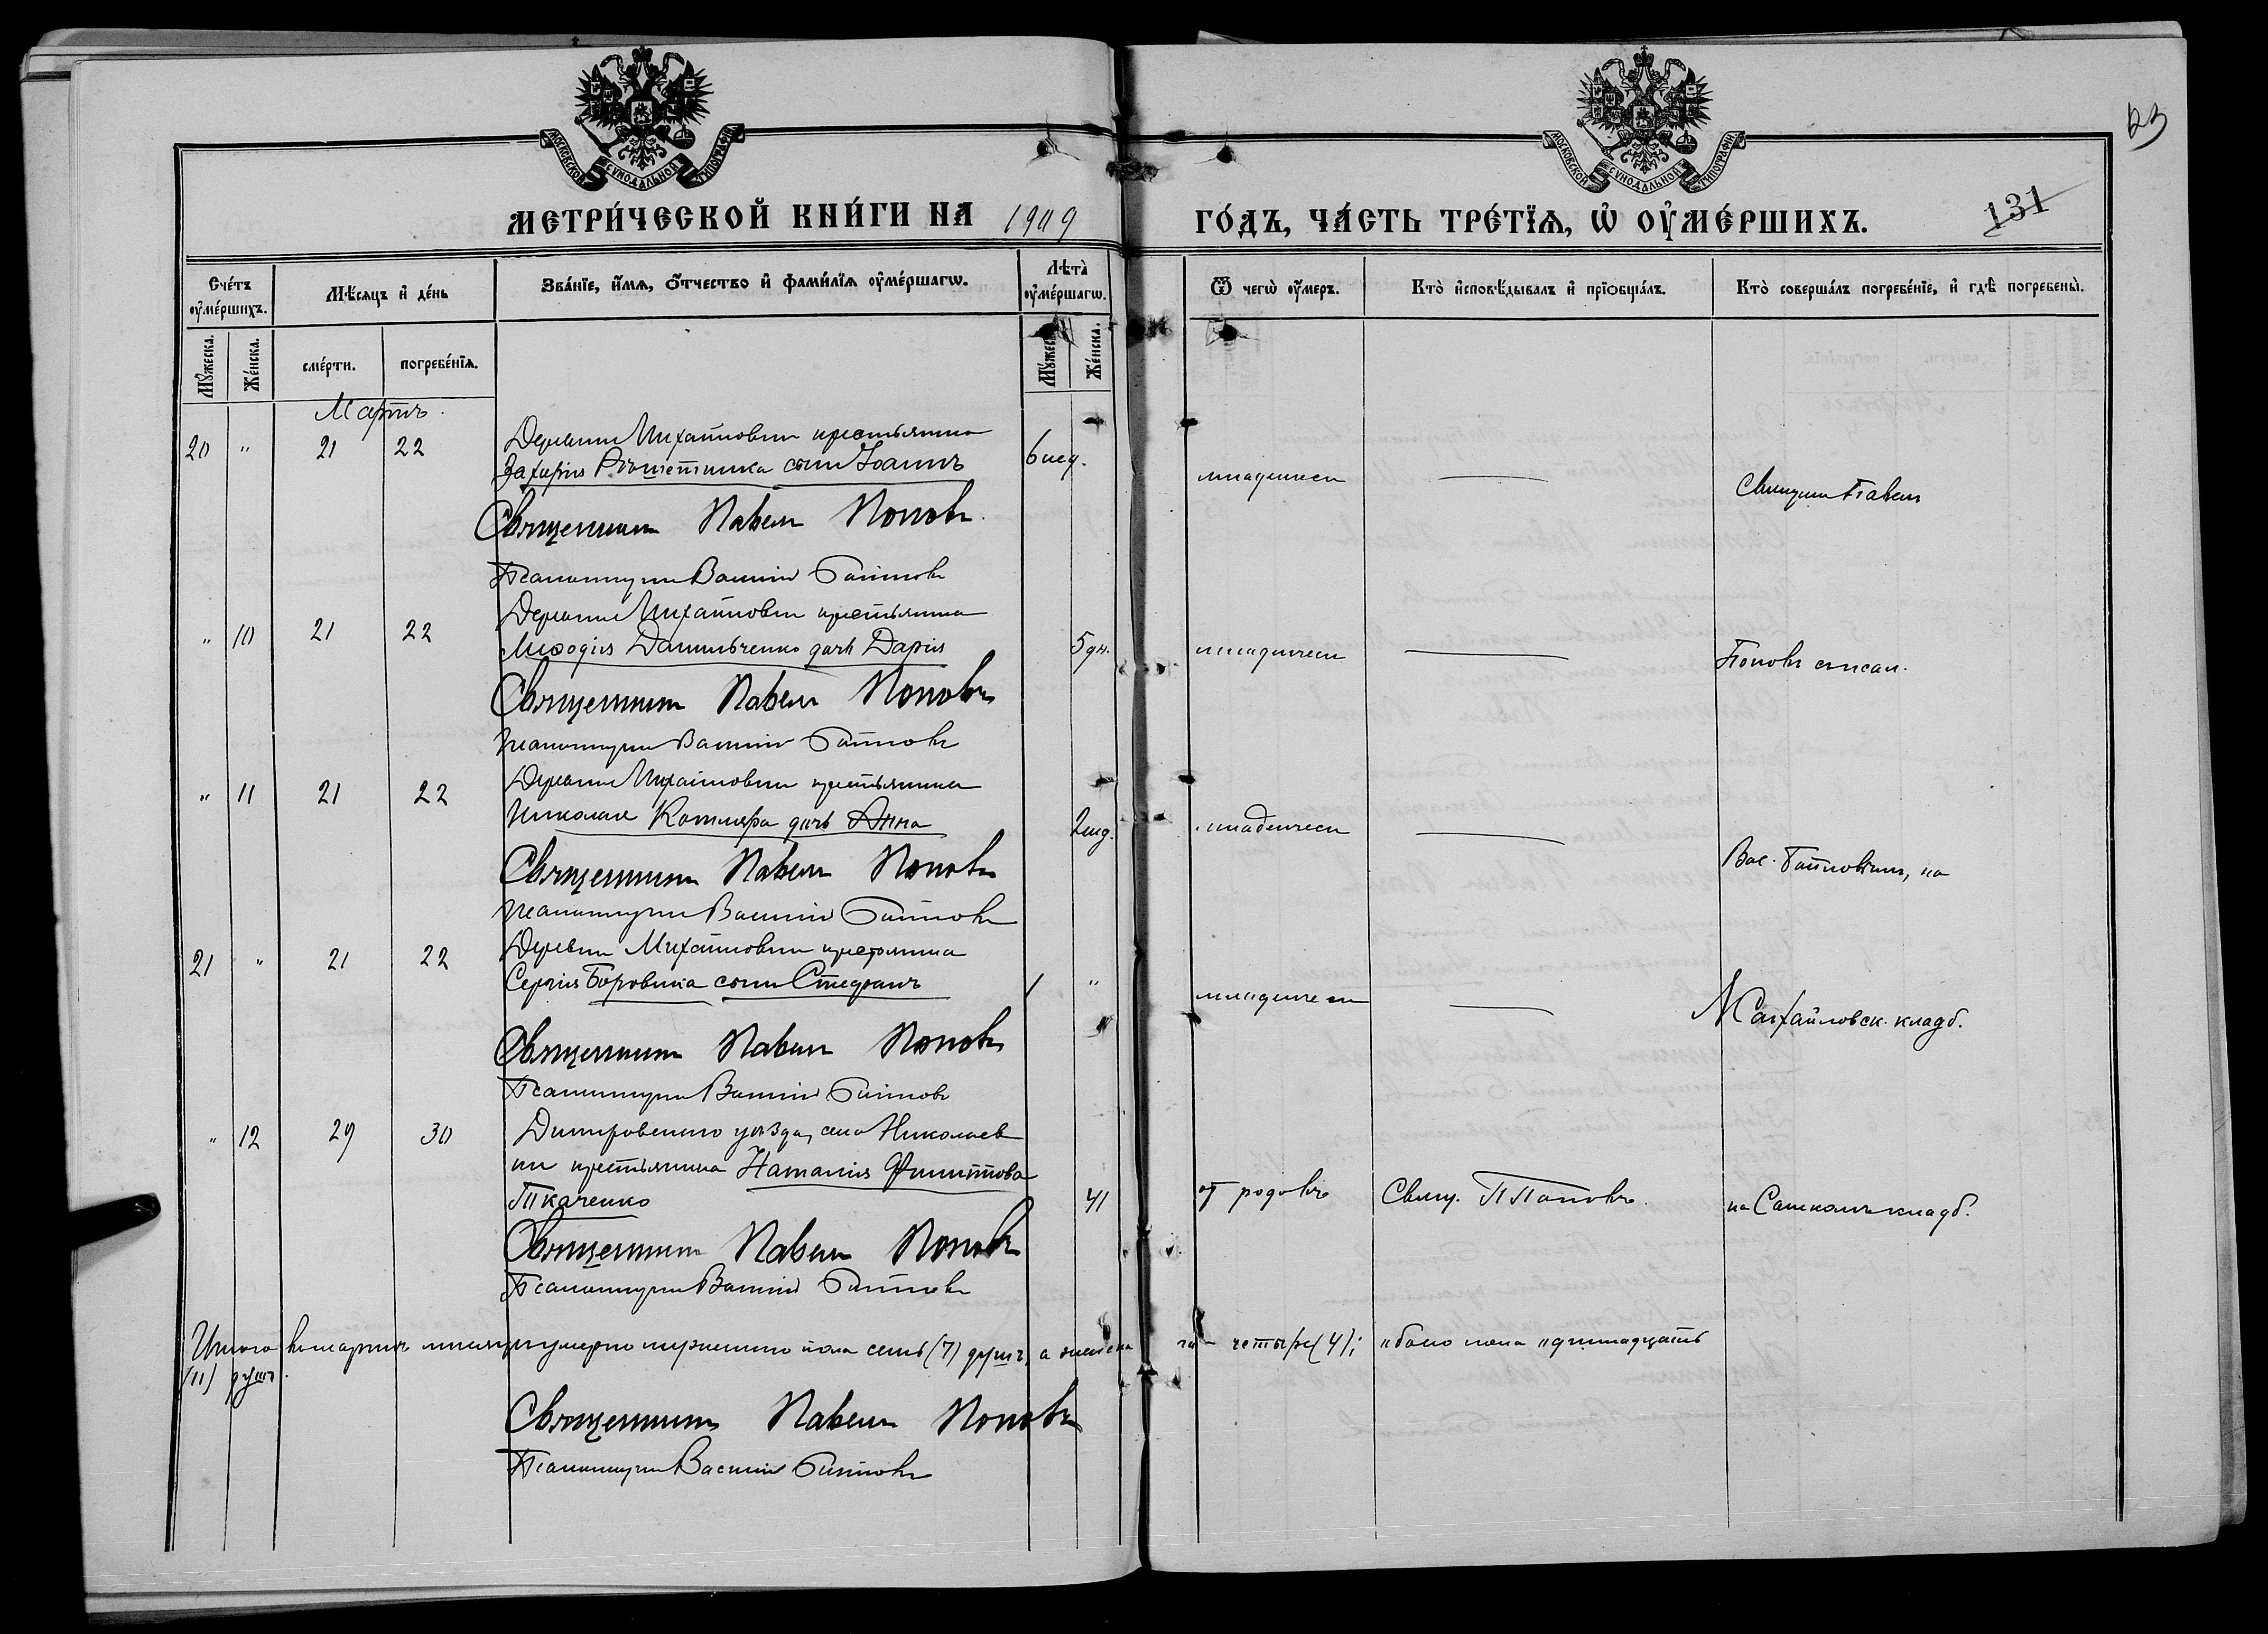 МОСКОВСКОЙ СѴНОДАЛЬНОЙ ТИПОГРАФІИ
МОСКОВСКОЙ СѴНОДАЛЬНОЙ ТИПОГРАФІИ
МЕТРИ́ЧЕСКОЙ КНИ́ГИ НА 1909
ГО́ДЪ, ЧА́СТЬ ТРЕ́ТЇѦ, Ѡ҆ ОУ҆МЕ́РШИХЪ.
131
Сче́тъ оу҆ме́ршихъ.
Мѣ́сѧцъ и҆ де́нь
Зва́нїе, и҆́мѧ, ѻ҆́тчество и҆ фами́лїѧ оу҆ме́ршагѡ.
Лѣта̀ оу҆ме́ршагѡ.
Ѿ чегѡ̀ оу҆́меръ.
Кто̀ и҆сповѣ́дывалъ и҆ прїѡбща́лъ.
Кто̀ соверша́лъ погребе́нїе, и҆ гдѣ̀ погребены̀.
Мꙋ́жеска.
Же́нска.
сме́рти.
погребе́нїѧ.
Мꙋ́жеска.
Же́нска.
Мартъ.
20 " 21 22 Деревни Михайловки крестьянина
Захарія Рѣшетника сынъ Іоаннъ 6 нед. младенческ. Священ. Павелъ
Священникъ Павелъ Поповъ.
Псаломщикъ Василій
" 10 21 22 Деревни Михайловки крестьянина
Меѳодія Данильченко дочь Дарія 5 дн. младенческ. Поповъ съ псал.
Священникъ Павелъ Поповъ
Псаломщикъ Василій
" 11 21 22 Деревни Михайловки крестьянина
Николая Котляра дочь Анна 2 нед. младенческ. Вас. на
Священникъ Павелъ Поповъ
Псаломщикъ Василій
21 " 21 22 Деревни Михайловки крестьянина
Сергія Боровика сынъ Стефанъ 1 " младенческ. Михайловск. кладб.
Священникъ Павелъ Поповъ
Псаломщикъ Василій
" 12 29 30 Дмитровскаго уѣзда, села Николаев
ки крестьянина Наталія Филиппова
Ткаченко 41 от родовъ Свящ. П Поповъ. на кладб.
Священникъ Павелъ Поповъ
Псаломщикъ Василій
Итого въ мартѣ мѣсяцѣ умерло мужескаго пола семь (7) душъ, а женска го четыре (4); обоего пола одиннадцать
(11) душъ.
Священникъ Павелъ Поповъ
Псаломщикъ Василій